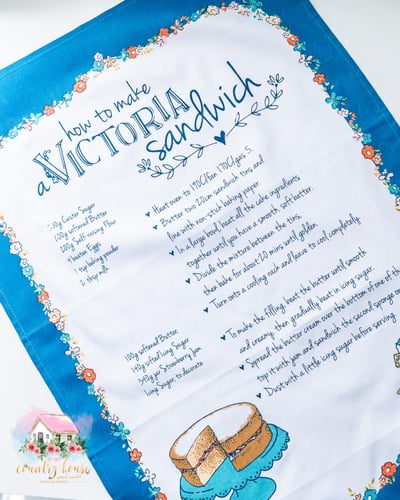 how to make
a VICTORIA
sandwich
Caster Sugar
softened Butter
Self-raising Flour
4 beaten Eggs
1 tsp baking powder
2 tbsp milk
♥ Heat oven to 190C/fan 170C/gas 5.
♥ Butter two 20cm sandwich tins and
line with non-stick baking paper
♥ In a large bowl, beat all the cake ingredients
together until you have a smooth, soft batter.
♥ Divide the mixture between the tins,
then bake for about 20 mins until golden
♥ Turn onto a cooling rack and leave to cool completely.
100g softened Butter
140g sifted Icing Sugar
340g jar Strawberry Jam
Icing Sugar, to decorate
♥ To make the filling, beat the butter until smooth
and creamy, then gradually beat in icing sugar.
♥ Spread the butter cream over the bottom of one of the
top it with jam and sandwich the second sponge on
♥ Dust with a little icing sugar before serving
country house